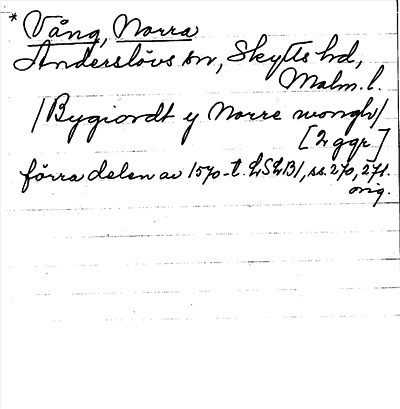 * Vång, Norra
Anderslövs sn, Skytts hd,
Malm. l.
/Bygiordt y Norre wongh/
[2 ggr.]
förra delen av 1570-t. LSLB1, ss. 270, 271.
orig.